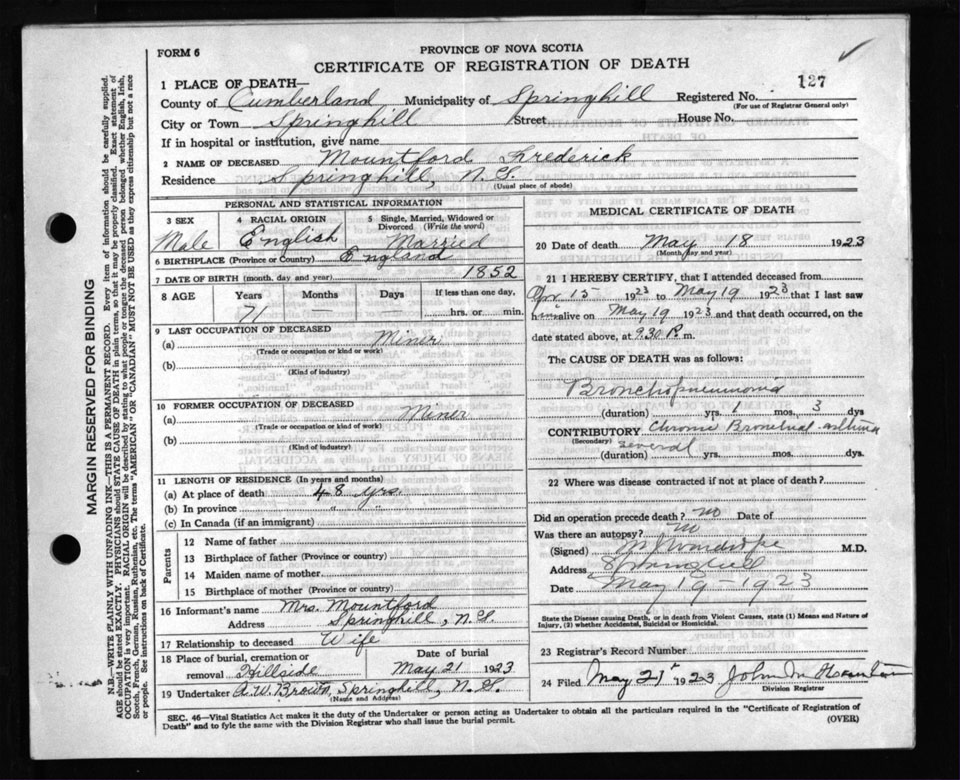 FORM 6
PROVINCE OF NOVA SCOTIA
CERTIFICATE OF REGISTRATION OF DEATH
127
1 PLACE OF DEATH—
County of Cumberland Municipality of Springhill Registered No.
(For use of Registrar General only)
City or Town Springhill Street House No.
If in hospital or institution, give name
2 NAME OF DECEASED Mountford Frederick
Residence Springhill, N.S.
(Usual place of abode)
PERSONAL AND STATISTICAL INFORMATION
3 SEX Male
4 RACIAL ORIGIN English
5 Single, Married, Widowed or Divorced. (Write the word) Married
6 BIRTHPLACE (Province or Country) England
7 DATE OF BIRTH (month, day and year) 1852
8 AGE Years Months Days If less than one day,
71 — — hrs. or min.
9 LAST OCCUPATION OF DECEASED
(a) Miner
(Trade or occupation or kind or work)
(b)
(Kind of industry)
10 FORMER OCCUPATION OF DECEASED
(a) Miner
(Trade or occupation or kind of work)
(b)
(Kind of industry)
11 LENGTH OF RESIDENCE (In years and months)
(a) At place of death 48 yrs.
(b) In province " "
(c) In Canada (if an immigrant)
Parents
12 Name of father
13 Birthplace of father (Province or country)
14 Maiden name of mother
15 Birthplace of mother (Province or country)
16 Informant's name Mrs. Mountford
Address Springhill, N.S.
17 Relationship to deceased Wife
18 Place of burial, cremation or removal Hillside Date of burial May 21 1923
19 Undertaker A.W. Brown, Springhill, N.S.
(Name and Address)
MEDICAL CERTIFICATE OF DEATH
20 Date of death May 18 1923
(Month, day and year)
21 I HEREBY CERTIFY, that I attended deceased from
Apr. 15 1923 to May 19 1923 that I last saw
him alive on May 19 1923 and that death occurred, on the
date stated above, at 9.30 P. m.
The CAUSE OF DEATH was as follows:
Bronchopneumonia
(duration) yrs. 1 mos. 3 dys
CONTRIBUTORY Chronic Bronchial asthma
(Secondary) several
(duration) yrs. mos. dys.
22 Where was disease contracted if not at place of death?
Did an operation precede death? no Date of
Was there an autopsy? no
(Signed) M.D.
Address Springhill
Date May 19 - 1923
State the Disease causing Death, or in death from Violent Causes, state (1) Means and Nature of Injury, (2) whether Accidental, Suicidal or Homicidal.
23 Registrar's Record Number
24 Filed May 21 1923 John
Division Registrar
SEC. 46—Vital Statistics Act makes it the duty of the Undertaker or person acting as Undertaker to obtain all the particulars required in the "Certificate of Registration of
Death" and to fyle the same with the Division Registrar who shall issue the burial permit.
(OVER)
MARGIN RESERVED FOR BINDING
N.B.—WRITE PLAINLY WITH UNFADING INK—THIS IS A PERMANENT RECORD. Every item of information should be carefully supplied.
AGE should be stated EXACTLY. PHYSICIANS should STATE CAUSE OF DEATH in plain terms, so that it may be properly classified. Exact statement of
OCCUPATION is very important. RACIAL ORIGIN will be described by stating to what people or tongue the deceased person belonged whether English, Irish,
Scotch, French, German, Russian, Ruthenian, etc. The terms "AMERICAN" or "CANADIAN" MUST NOT BE USED as they express citizenship but not a race
or people. See instructions on back of Certificate.